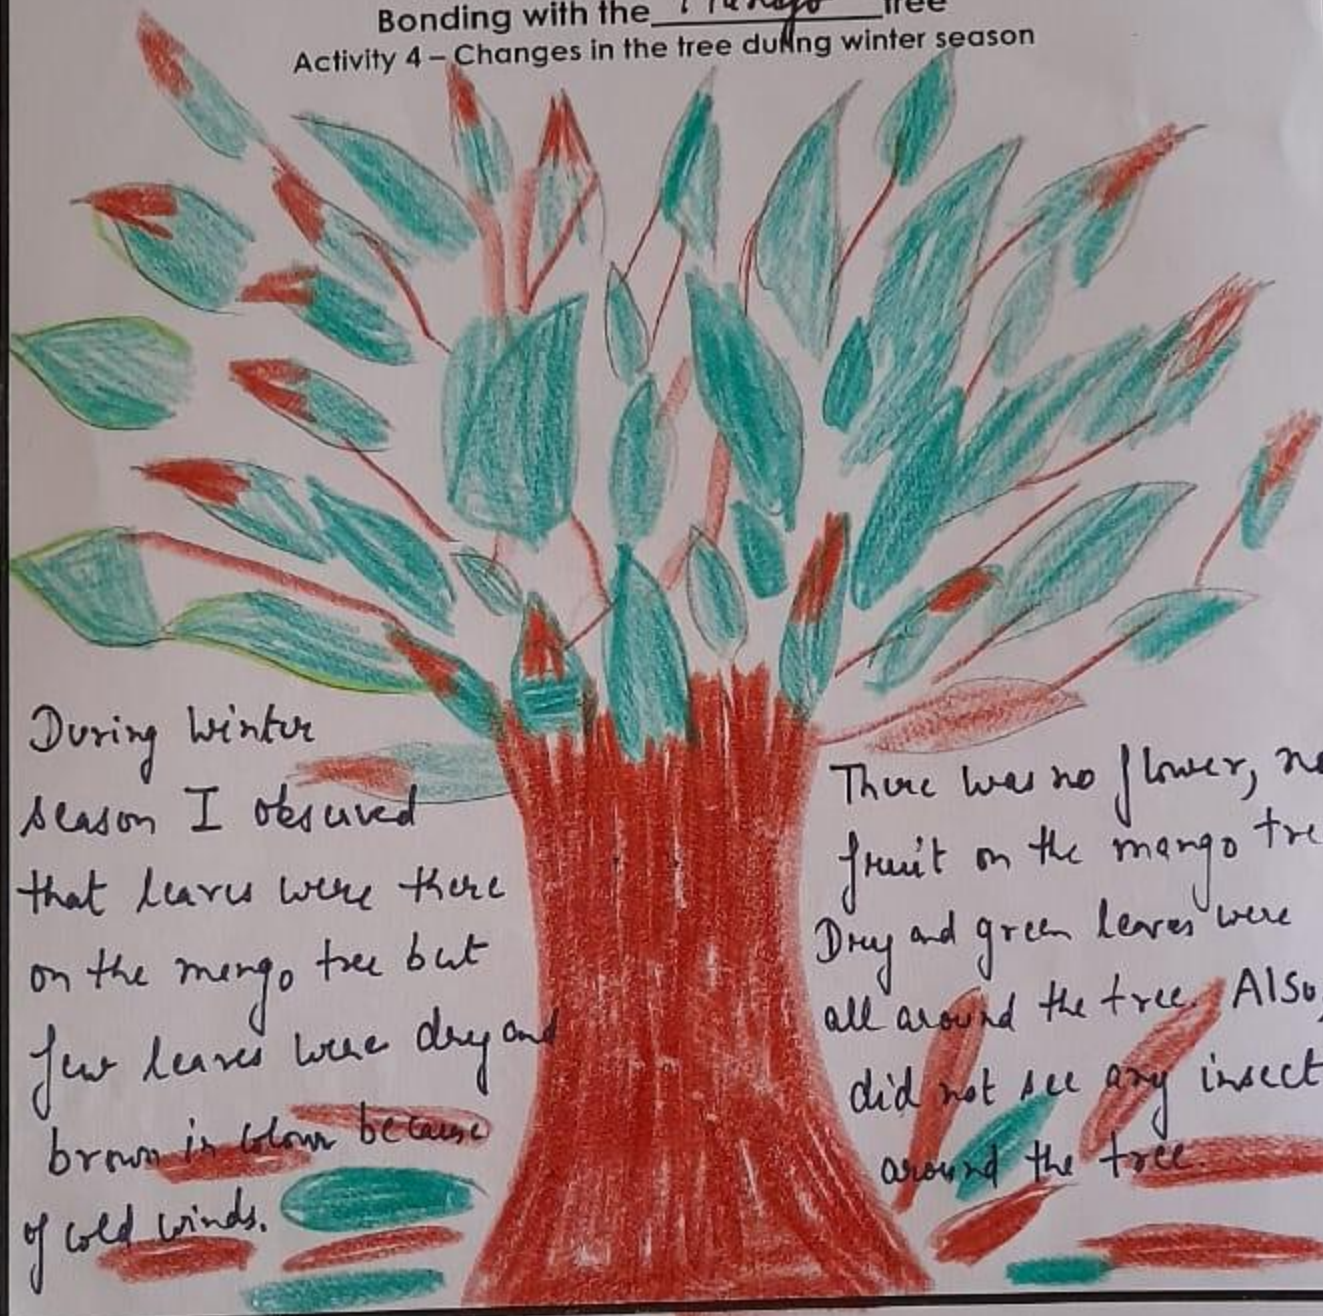 Bonding with the Mango Tree
Activity 4 – Changes in the tree during winter season
During winter
season I observed
that leaves were there
on the mango tree but
few leaves were dry and
brown in colour because
of cold winds.
There was no flower, no
fruit on the mango tre
Dry and green leaves were
all around the tree. Also,
did not see any insect
around the tree.